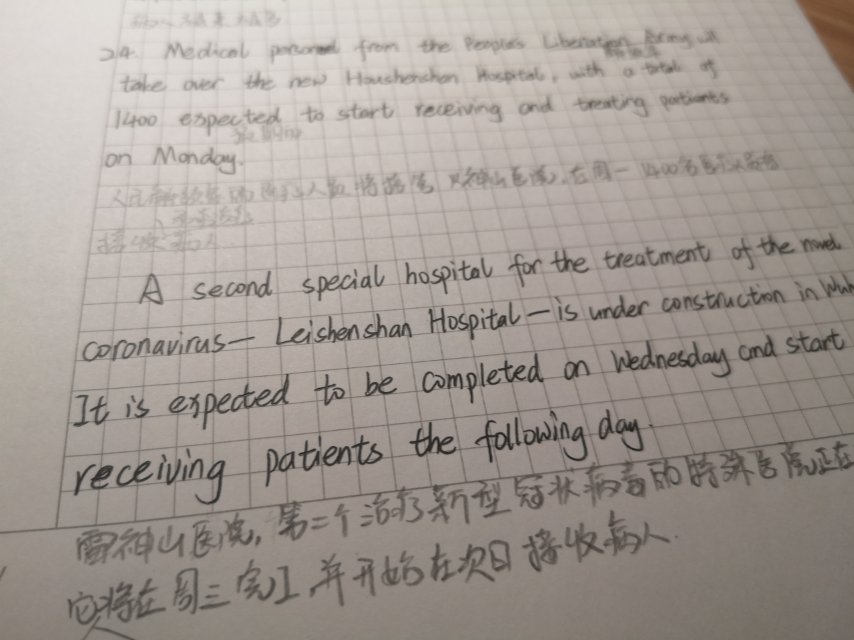 24. Medical personnel from the People's Liberation Army will
take over the new Houshenshan Hospital, with a total of
1400 expected to start receiving and treating patients
on Monday.
接收病人
A second special hospital for the treatment of the novel
coronavirus— Leishenshan Hospital— is under construction in Wuh
It is expected to be completed on Wednesday and start
receiving patients the following day.
雷神山医院,第二个治疗新型冠状病毒的特殊医院正在
它将在周三完工,并开始在次日接收病人.